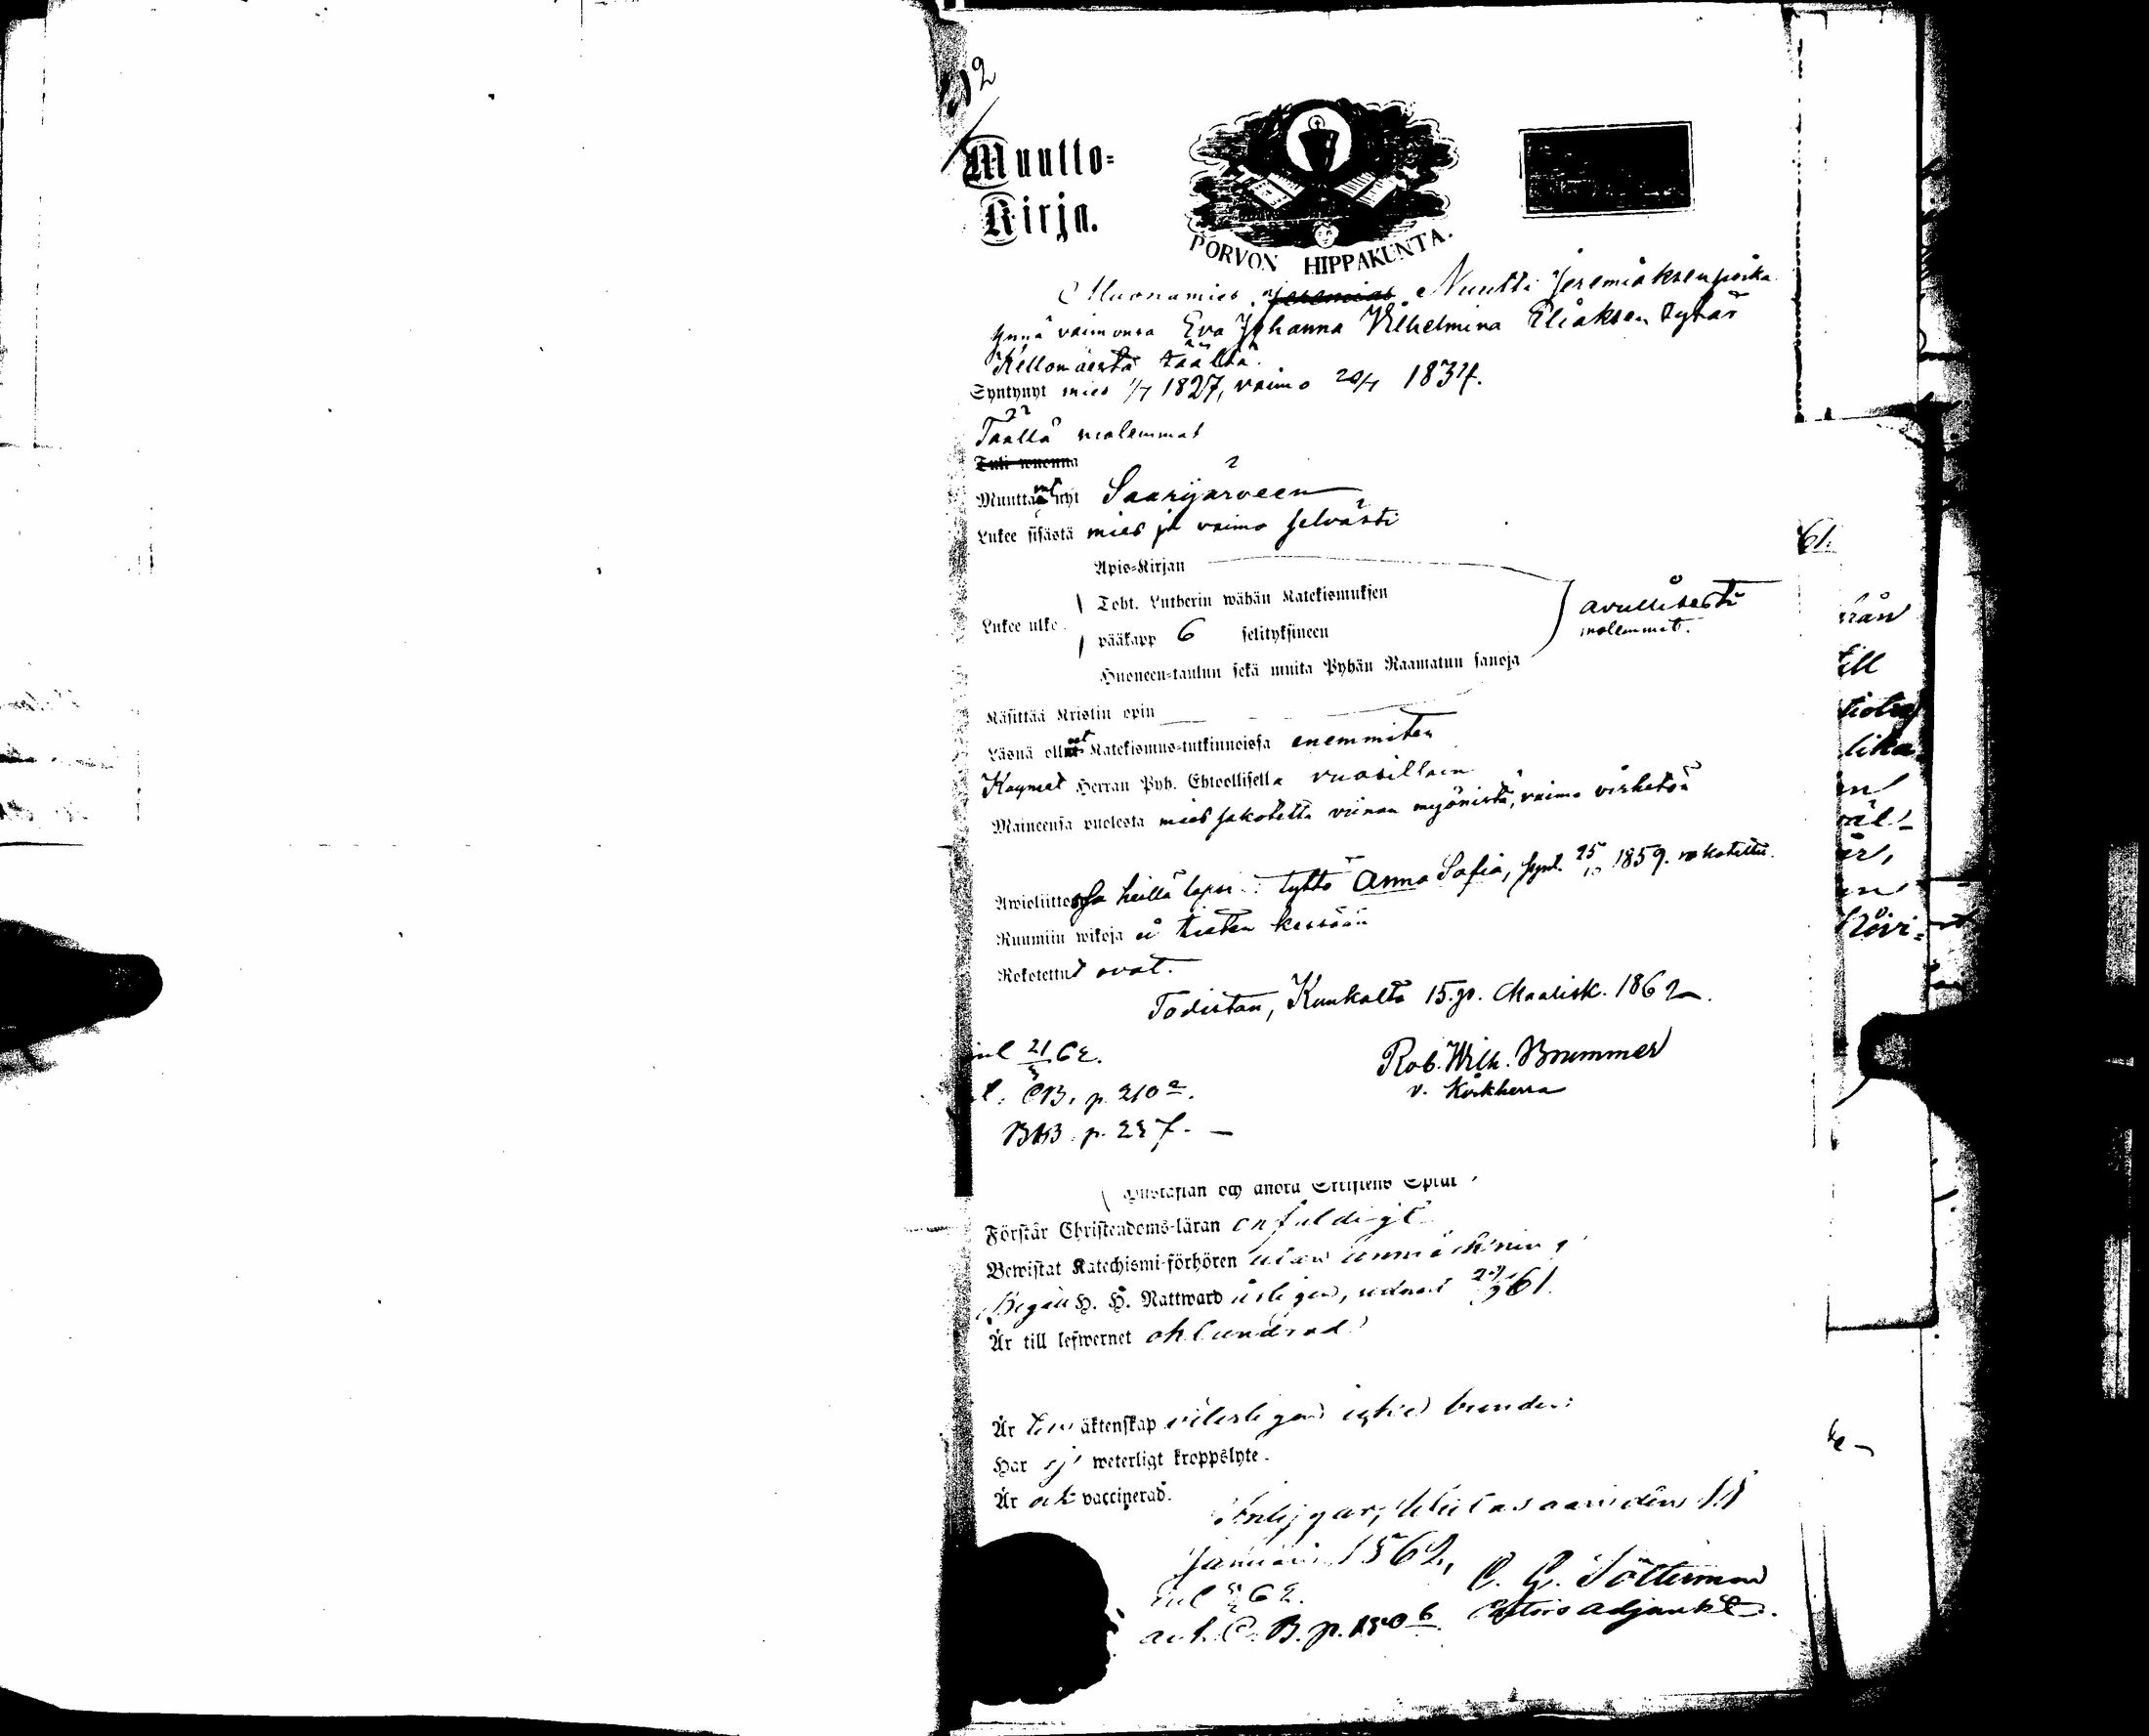 Muutto-
Kirja.
PORVON HIPPAKUNTA.
Muonamies Jeremias Nuutti Jeremiaksenpoika
ynnä vaimonsa Eva Johanna Vilhelmina Eliaksen tytär
Kellomäestä täältä.
Syntynyt mies 1/7 1827, vaimo 20/7 1834.
Täällä molemmat
Tuli wuonna
Muuttavat nyt Saarijärveen
Lukee sisästä mies ja vaimo selvästi
Apis-Kirjan
Toht. Lutherin wähän Katekismuksen
Lukee ulko
pääkapp 6 selityksineen
Huoneen-taulun sekä muita Pyhän Raamatun sanoja
avullisesti
molemmat.
Käsittää Kristin opin
Läsnä olleet Katekismus-tutkinnoissa enemmiten
Käyneet Herran Pyh. Ehtoollisella vuosillain
Maineensa puolesta mies sakotettu viinan myönistä, vaimo virhetön
Awioliitossa heillä lapsi: tyttö Anna Sofia, synt. 25/10 1859. rokotettu.
Ruumiin wikoja ei tieten kessään
Rokotettud ovat.
Todistan, Kuukalta 15. p. Maalisk. 1862.
Rob. Wilh. Brummer
v. Kirkherra
inl 21/3 62.
C.B. p. 210 a.
BKB. p. 237. —
och andra Skriftens Språk
Förstår Christendoms-läran enfaldigt
Bewistat Katechismi-förhören utan anmärkning
Begått H. H. Nattward årligen, sednast 61.
Är till lefwernet oklandrad
Är till äktenskap
Har ej weterligt kroppslyte.
Är ock vaccinerad.
Januari 1862,
inl 62.
C. G. Tötterman
Pastors adjunkt.
ant. C. B. p. 150 b.
61.
rån
till
lika